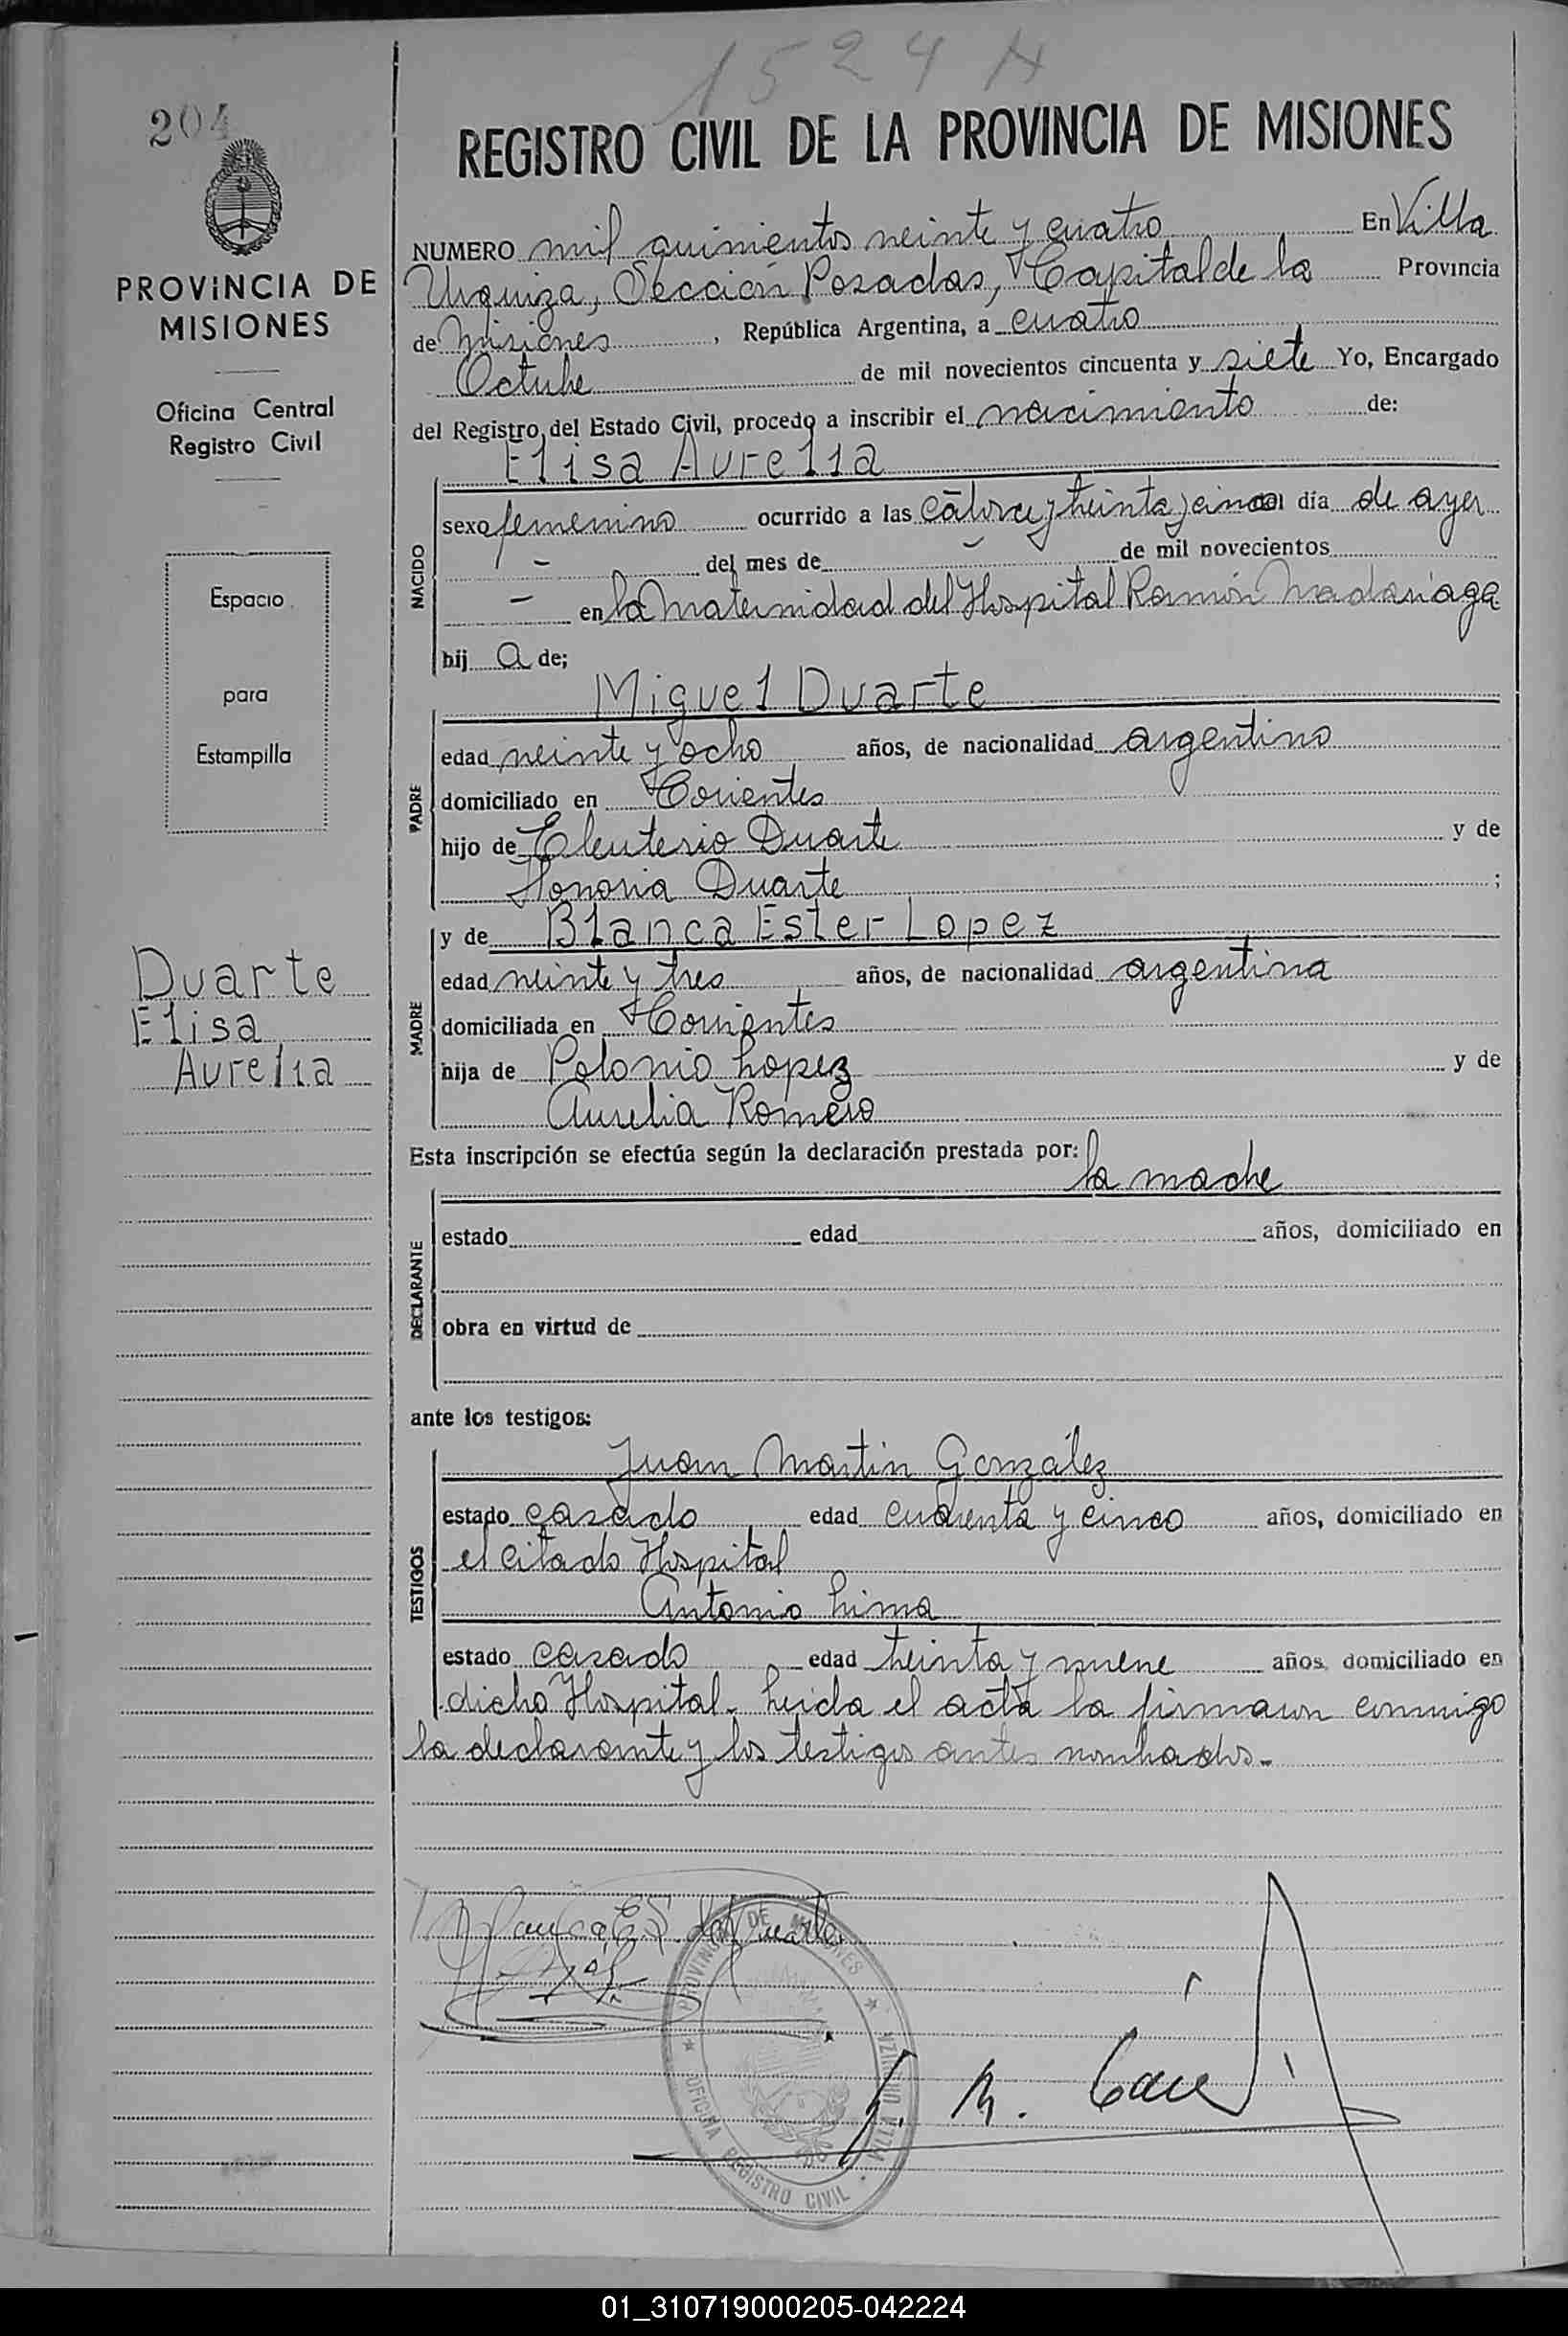 1524 H
204
REGISTRO CIVIL DE LA PROVINCIA DE MISIONES
PROVINCIA DE
MISIONES
Oficina Central
Registro Civil
Espacio
para
Estampilla
Duarte
Elisa
Aurelia
NUMERO mil quinientos veinte y cuatro En Villa
Urquiza, Sección Posadas, Capital de la Provincia
de Misiones , República Argentina, a cuatro
Octubre de mil novecientos cincuenta y siete Yo, Encargado
del Registro del Estado Civil, procedo a inscribir el nacimiento de:
Elisa Aurelia
NACIDO
sexo femenino ocurrido a las catorce y treinta y cinco el día de ayer
- del mes de - de mil novecientos
- en la Maternidad del Hospital Ramón Madariaga
hij a de;
Miguel Duarte
PADRE
edad veinte y ocho años, de nacionalidad argentino
domiciliado en Corrientes
hijo de Eleuterio Duarte y de
Honoria Duarte ;
y de Blanca Ester Lopez
MADRE
edad veinte y tres años, de nacionalidad argentina
domiciliada en Corrientes
hija de Polonio Lopez y de
Aurelia Romero
Esta inscripción se efectúa según la declaración prestada por:
la madre
DECLARANTE
estado edad años, domiciliado en
obra en virtud de
ante los testigos:
Juan Martin González
TESTIGOS
estado casado edad cuarenta y cinco años, domiciliado en
el citado Hospital
Antonio Lima
estado casado edad treinta y nueve años, domiciliado en
dicho Hospital. Leida el acta la firmaron conmigo
la declarante y los testigos antes nombrados.-
PROVINCIA DE MISIONES
VILLA URQUIZA
OFICINA REGISTRO CIVIL
01_310719000205-042224